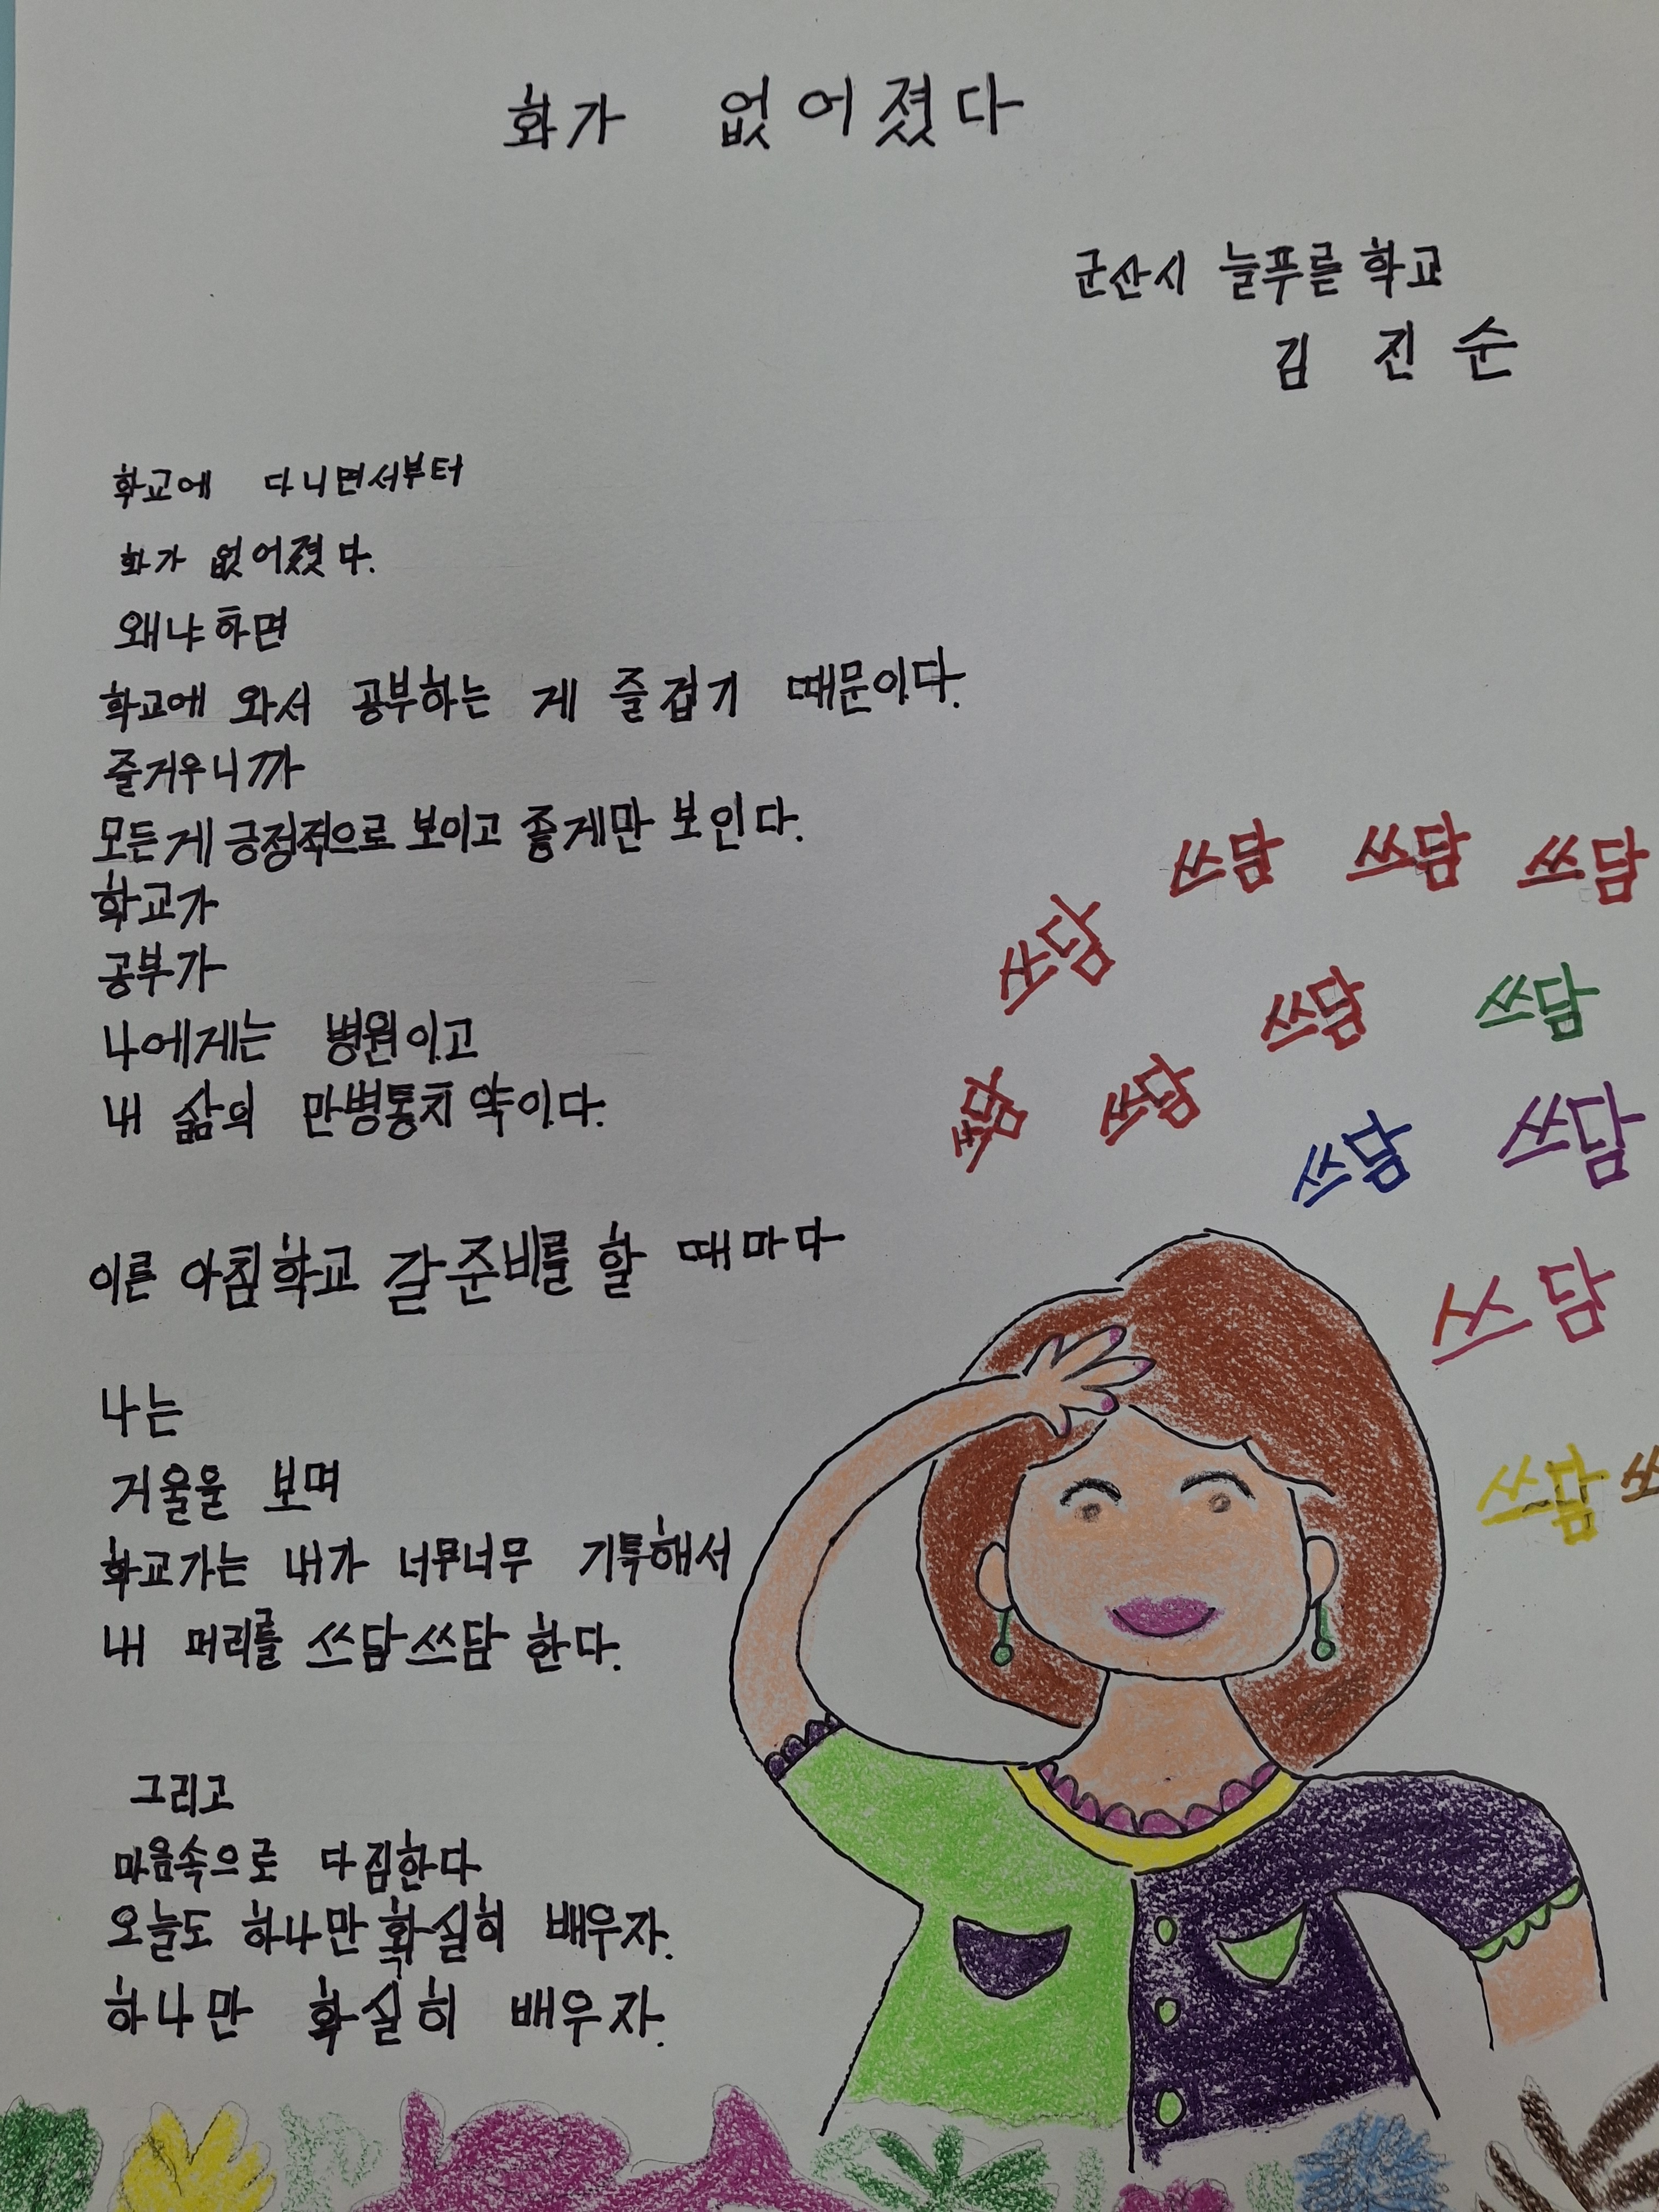 화가 없어졌다
군산시 늘푸른 학교
김 진 순
학교에 다니면서부터
화가 없어졌다.
왜냐하면
학교에 와서 공부하는 게 즐겁기 때문이다.
즐거우니까
모든게 긍정적으로 보이고 좋게만 보인다.
학교가
공부가
나에게는 병원이고
내 삶의 만병통치약이다.
이른 아침학교 갈준비를 할 때마다
나는
거울을 보며
학교가는 내가 너무너무 기특해서
내 머리를 쓰담쓰담 한다.
그리고
마음속으로 다짐한다
오늘도 하나만 확실히 배우자.
하나만 확실히 배우자.
쓰담 쓰담 쓰담
쓰담
쓰담 쓰담
쓰담 쓰담
쓰담 쓰담
쓰담
쓰담 쓰